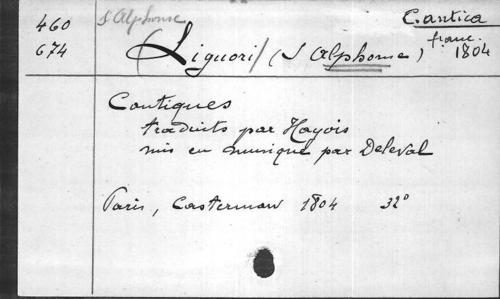 460
674
S Alphonse
Cantica
franc.
1804
(Liguori) (S Alphonse)
Cantiques
traduits par Hayois
mis en musique par Deleval
Paris, Casterman 1804 32°